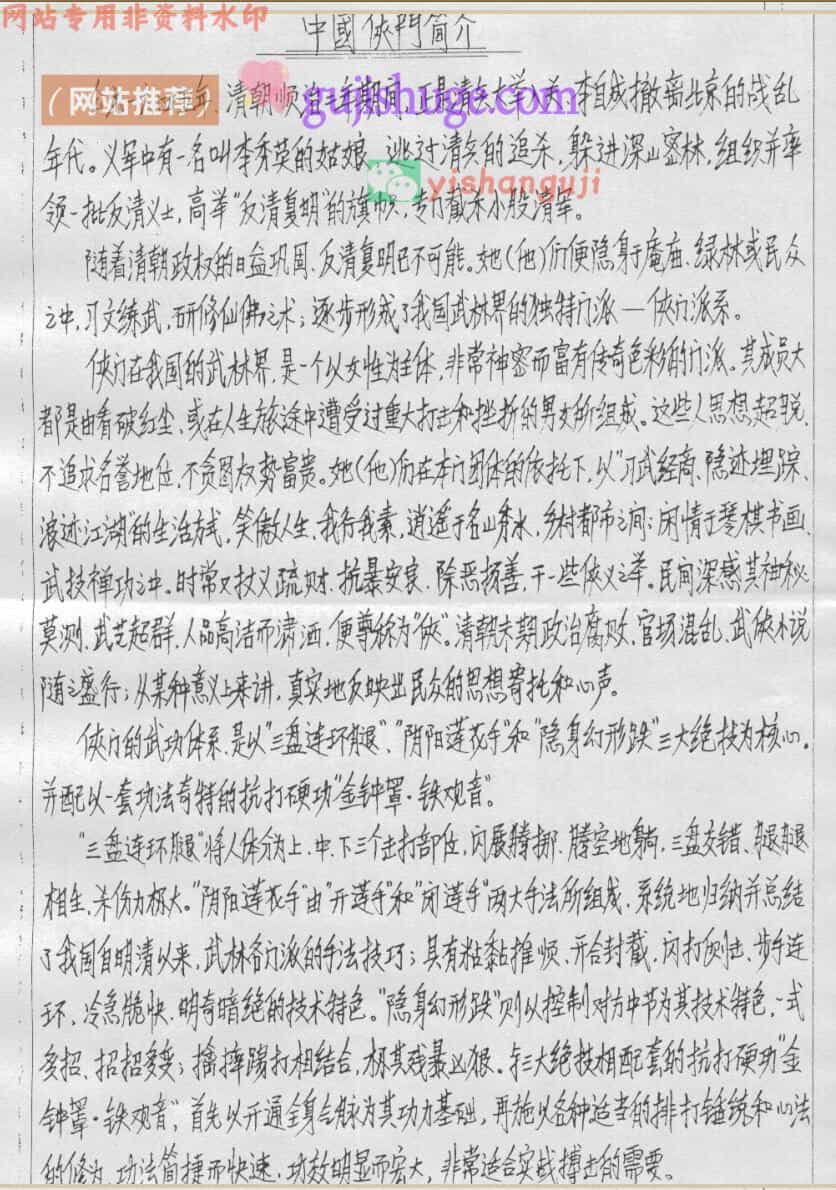 网站专用非资料水印
中國侠門简介
(网站推荐)
gujishuge.com
清朝顺治元年期间,正是清兵大举入关、李自成撤离北京的战乱
年代。义军中有一名叫李秀英的姑娘,逃过清兵的追杀,躲进深山密林,组织并率
yishanguji
领一批反清义士,高举“反清复明”的旗帜,专门截杀小股清军。
随着清朝政权的日益巩固,反清复明已不可能。她(他)们便隐身于庵庙、绿林或民众
之中,习文练武,研修仙佛之术;逐步形成了我国武林界的独特门派——侠门派系。
侠门在我国的武林界,是一个以女性为主体,非常神密而富有传奇色彩的门派。其成员大
都是由看破红尘、或在人生旅途中遭受过重大打击和挫折的男女所组成。这些人思想超脱、
不追求名誉地位,不贪图权势富贵。她(他)们在本门团体的依托下,以“习武经商、隐迹埋踪、
浪迹江湖”的生活方式,笑傲人生,我行我素,逍遥于名山秀水,乡村都市之间;闲情于琴棋书画、
武技禅功之中。时常又仗义疏财、抗暴安良、除恶扬善,干一些侠义之举。民间深感其神秘
莫测、武艺超群、人品高洁而潇洒,便尊称为“侠”。清朝末期政治腐败、官场混乱、武侠小说
随之盛行;从某种意义上来讲,真实地反映出民众的思想寄托和心声。
侠门的武功体系,是以“三盘连环腿”、“阴阳莲花手”和“隐身幻形跌”三大绝技为核心。
并配以一套功法奇特的抗打硬功“金钟罩·铁观音”。
“三盘连环腿”将人体分为上、中、下三个击打部位,闪展腾挪、腾空地躺,三盘交错、腿腿
相生,杀伤力极大。“阴阳莲花手”由“开莲手”和“闭莲手”两大手法所组成,系统地归纳并总结
了我国自明清以来,武林各门派的手法技巧;具有粘黏推顺、开合封截、闪打侧击、步手连
环、冷急脆快、明奇暗绝的技术特色。“隐身幻形跌”则以控制对方中节为其技术特色,一式
多招、招招多变;擒摔踢打相结合,极其残暴凶狠。与三大绝技相配套的抗打硬功“金
钟罩·铁观音”,首先以开通全身气脉为其功力基础,再施以各种适当的排打锤练和心法
的修为,功法简捷而快速,功效明显而宏大,非常适合实战搏击的需要。